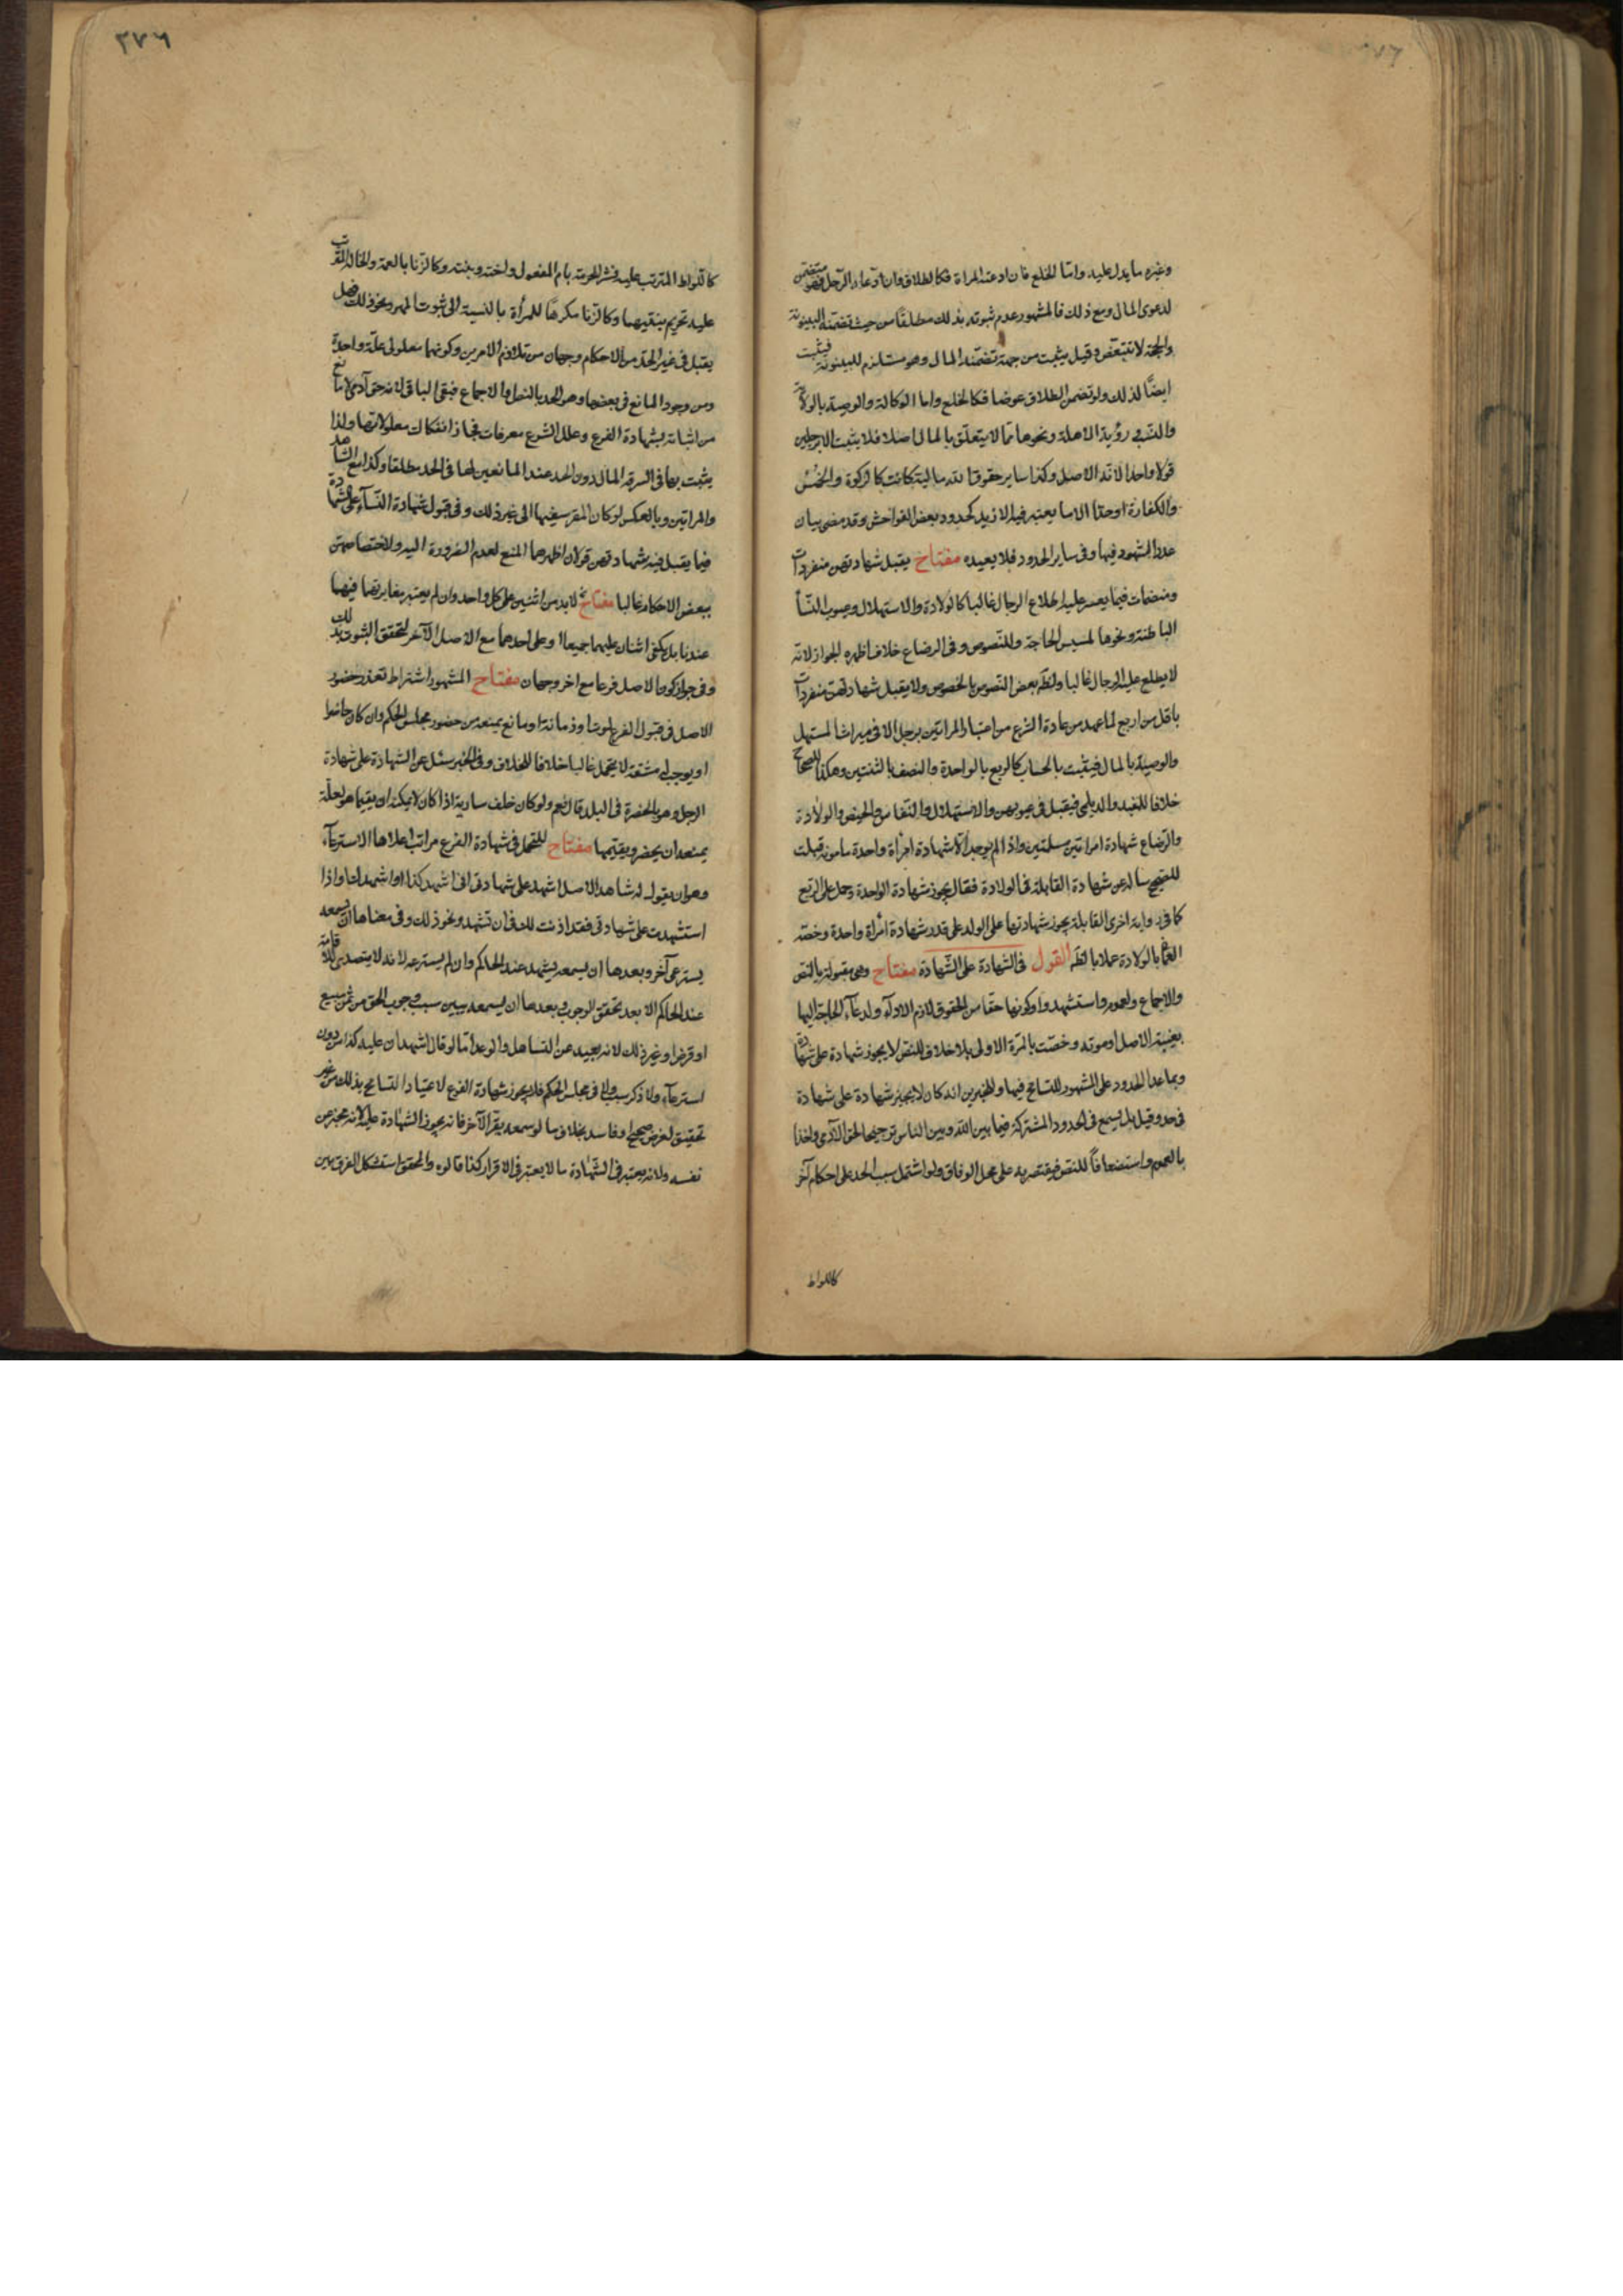 وغيره ما يدل عليه واما الخلع فان ادعته المراة فكالطلاق وان ادعاه الرجل فهو متضمن
لدعوى المال ومع ذلك فالمشهور عدم ثبوته بذلك مطلقا من حيث تضمنه البينونة
والحجة لا تتبعض وقيل يثبت من جهة تضمنه المال وهو مستلزم للبينونة فيثبت
ايضا لذلك ولو تضمن الطلاق عوضا فكالخلع واما الوكالة والوصية بالولاية
والنسب ورؤية الاهلة ونحوها مما لا يتعلق بالمال اصلا فلا يثبت الا برجلين
قولا واحدا لانه الاصل وكذا ساير حقوق الله مالية كانت كالزكوة والخمس
والكفارة او حدا الا ما يعتبر فيه الازيد كحدود بعض الفواحش وقد مضى بيان
عدد الشهود فيها وفى ساير الحدود فلا يعيده مفتاح يقبل شهادتهن منفردات
ومنضمات فيما يعسر عليه اطلاع الرجال غالبا كالولادة والاستهلال وعيوب النسا
الباطنة ونحوها لمسيس الحاجة وللنصوص وفى الرضاع خلاف اظهره الجواز لانه
لا يطلع عليه الرجال غالبا ولظ بعض النصوص بالخصوص ولا يقبل شهادتهن منفردات
باقل من اربع لما عهد من عادة الشرع من اعتبار المراتين برجل الا فى ميراث المستهل
والوصية بالمال فيثبت بالحساب كالربع بالواحدة والنصف بالثنتين وهكذا للصحاح
خلافا للمفيد والديلمى فيقبل فى عيوبهن والاستهلال والنفاس والحيض والولادة
والرضاع شهادة امراتين مسلمتين واذا لم يوجد الا شهادة امرأة واحدة مامونة قبلت
للصحيح سالته عن شهادة القابلة فى الولادة فقال يجوز شهادة الواحدة وحمل على الربع
كما فى رواية اخرى القابلة يجوز شهادتها على الولد على قدر شهادة امرأة واحدة وخصه
بالولادة عملا بالظ القول فى الشهادة على الشهادة مفتاح وهى مقبولة بالنص
والاجماع ولعموم واستشهدوا وكونها حقا من الحقوق لازم الاداء ولدعاء الحاجة اليها
بغيبة الاصل او موته وخصت بالمرة الاولى بلا خلاف للنص لا يجوز شهادة على شهادة
وبما عدا الحدود على المشهور للتسامح فيها وللخبرين انه كان لا يجيز شهادة على شهادة
فى حد وقيل بل يسمع فى الحدود المشتركة فيما بين الله وبين الناس ترجيحا لحق الآدمى واخذا
بالعموم واستضعافا للنص فيقتصر به على محل الوفاق ولو اشتمل سبب الحد على احكام آخر
كاللواط
٢٧٦
كاللواط المترتب عليه نشر الحرمة بام المفعول واخته وبنته وكالزنا بالعمة والخالة المترتب
عليه تحريم بنتيهما وكالزنا مكرها للمرأة بالنسبة الى ثبوت المهر ونحو ذلك فهل
يقبل فى غير الحد من الاحكام وجهان من تلازم الامرين وكونهما معلولى علة واحدة
ومن وجود المانع فى بعضها وهو الحد بالنص والاجماع فبقى الباقى لانه حق آدمى لا مانع
من اثباته بشهادة الفرع وعلل الشرع معرفات فجاز انفكاك معلولاتها ولذا
يثبت بها فى السرقة المال دون الحد عند المانعين لها فى الحد مطلقا وكذا مع الشاهد
والمراتين وبالعكس لو كان المقر سفيها الى غير ذلك وفى قبول شهادة النسآء على الشهادة
فيما يقبل فيه شهادتهن قولان اظهرهما المنع لعدم الضرورة اليه ولاختصاصهن
ببعض الاحكام غالبا مفتاح لا بد من اثنين على كل واحد وان لم يعتبر مغايرتهما فيهما
عندنا بل يكفى اثنان عليهما جميعا او على احدهما مع الاصل الآخر لتحقق الثبوت بذلك
وفى جواز كون الاصل فرعا مع اخر وجهان مفتاح المشهور اشتراط تعذر حضور
الاصل فى قبول الفرع لموت او زمانة او مانع يمنعه من حضور مجلس الحكم وان كان حاضرا
او يوجب مشقة لا يتحمل غالبا خلافا للخلاف وفى الخبر سئل عن الشهادة على شهادة
الرجل وهو بالحضرة فى البلد قال نعم ولو كان خلف سارية اذا كان لا يمكنه ان يقيمها هو لعلة
يمنعه ان يحضر ويقيمها مفتاح للتحمل فى شهادة الفرع مراتب اعلاها الاسترعآء
وهو ان يقول له شاهد الاصل اشهد على شهادتى انى اشهد كذا او اشهدتك واذا
استشهدت على شهادتى فقد اذنت لك فى ان تشهد ونحو ذلك وفى معناها ان يسمعه
يسترعى آخر وبعدها ان يسمعه يشهد عند الحاكم وان لم يسترعه لانه لا يتصدى للاقامة
عند الحاكم الا بعد تحقق الوجوب وبعدها ان يسمعه يبين سبب وجوب الحق من ثمن مبيع
او قرض او غير ذلك لانه بعيد عن التساهل والوعد اما لو قال اشهد ان عليه كذا من دون
استرعآء ولا ذكر سبب ولا فى مجلس الحكم فلا يجوز شهادة الفرع لاعتياد التسامح بذلك من غير
تحقيق لغرض صحيح او فاسد بخلاف ما لو سمعه يقر الآخر فانه يجوز الشهادة عليه لانه مخبر عن
نفسه ولانه يعتبر فى الشهادة ما لا يعتبر فى الاقرار كذا قالوه والمحقق استشكل الفرق بين